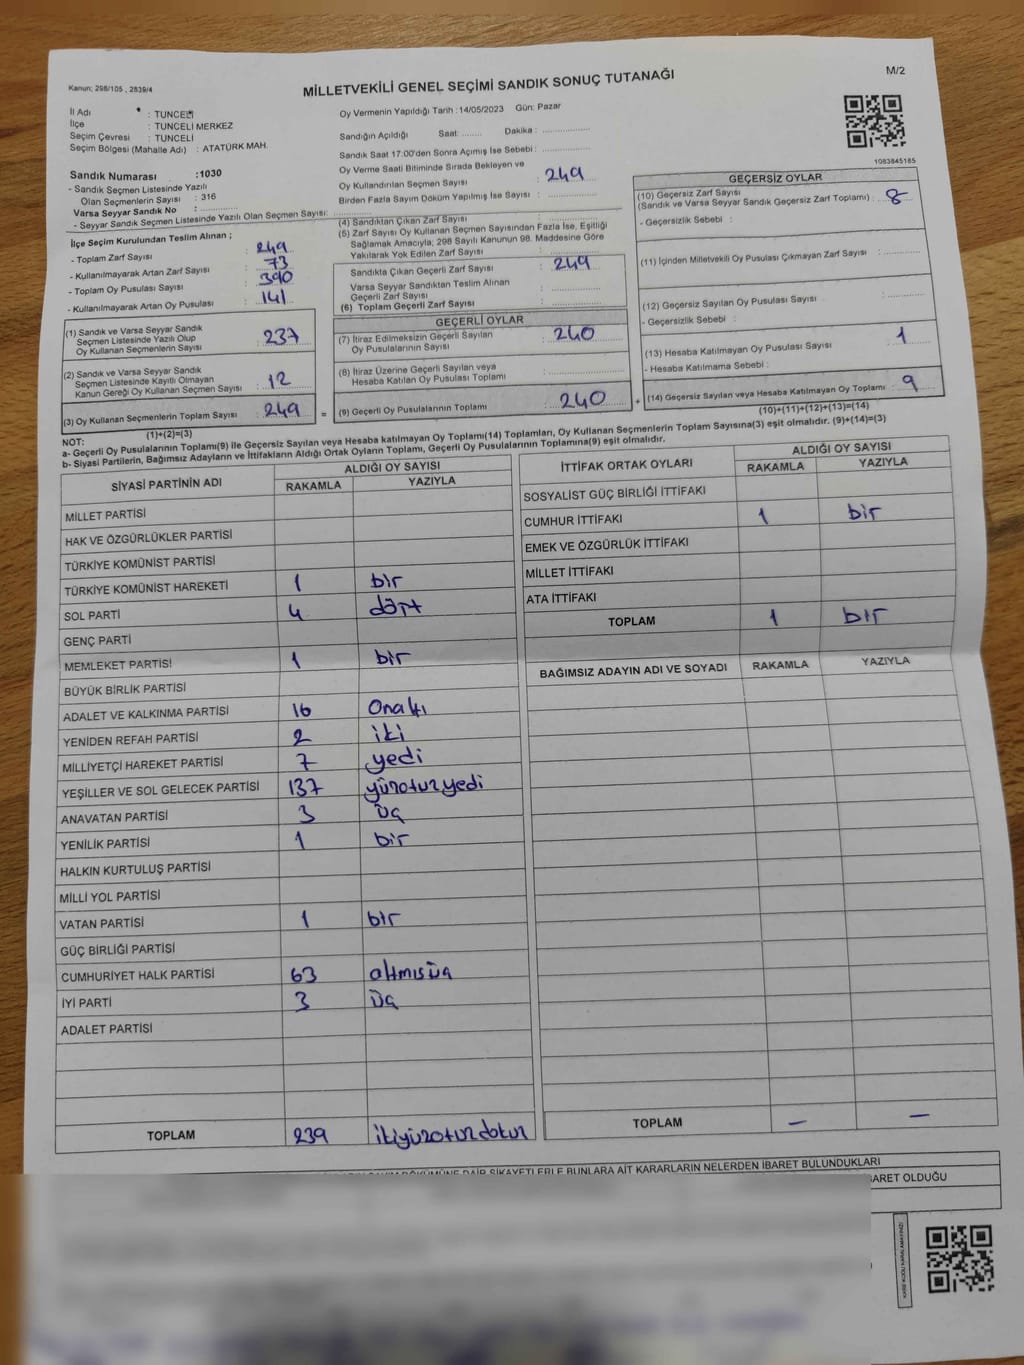 Kanun: 298/105 , 2839/4
MİLLETVEKİLİ GENEL SEÇİMİ SANDIK SONUÇ TUTANAĞI
M/2
İl Adı : TUNCELİ
İlçe : TUNCELİ MERKEZ
Seçim Çevresi : TUNCELİ
Seçim Bölgesi (Mahalle Adı) : ATATÜRK MAH.
Oy Vermenin Yapıldığı Tarih : 14/05/2023 Gün: Pazar
Sandığın Açıldığı Saat: ........ Dakika : ..............
Sandık Saat 17:00'den Sonra Açımış İse Sebebi :
Oy Verme Saati Bitiminde Sırada Bekleyen ve
Oy Kullandırılan Seçmen Sayısı : 249
Birden Fazla Sayım Döküm Yapılmış İse Sayısı :
1083845185
Sandık Numarası :1030
- Sandık Seçmen Listesinde Yazılı
Olan Seçmenlerin Sayısı : 316
Varsa Seyyar Sandık No :
- Seyyar Sandık Seçmen Listesinde Yazılı Olan Seçmen Sayısı:
İlçe Seçim Kurulundan Teslim Alınan ;
- Toplam Zarf Sayısı : 249
- Kullanılmayarak Artan Zarf Sayısı : 73
- Toplam Oy Pusulası Sayısı : 390
- Kullanılmayarak Artan Oy Pusulası : 141
(1) Sandık ve Varsa Seyyar Sandık
Seçmen Listesinde Yazılı Olup
Oy Kullanan Seçmenlerin Sayısı : 237
(2) Sandık ve Varsa Seyyar Sandık
Seçmen Listesinde Kayıtlı Olmayan
Kanun Gereği Oy Kullanan Seçmen Sayısı : 12
(3) Oy Kullanan Seçmenlerin Toplam Sayısı : 249 =
(1)+(2)=(3)
(4) Sandıktan Çıkan Zarf Sayısı :
(5) Zarf Sayısı Oy Kullanan Seçmen Sayısından Fazla İse, Eşitliği
Sağlamak Amacıyla; 298 Sayılı Kanunun 98. Maddesine Göre
Yakılarak Yok Edilen Zarf Sayısı :
Sandıkta Çıkan Geçerli Zarf Sayısı : 249
Varsa Seyyar Sandıktan Teslim Alınan
Geçerli Zarf Sayısı :
(6) Toplam Geçerli Zarf Sayısı :
GEÇERLİ OYLAR
(7) İtiraz Edilmeksizin Geçerli Sayılan
Oy Pusulalarının Sayısı : 240
(8) İtiraz Üzerine Geçerli Sayılan veya
Hesaba Katılan Oy Pusulası Toplamı :
(9) Geçerli Oy Pusulalarının Toplamı : 240 +
GEÇERSİZ OYLAR
(10) Geçersiz Zarf Sayısı
(Sandık ve Varsa Seyyar Sandık Geçersiz Zarf Toplamı) : 8
- Geçersizlik Sebebi :
(11) İçinden Milletvekili Oy Pusulası Çıkmayan Zarf Sayısı :
(12) Geçersiz Sayılan Oy Pusulası Sayısı :
- Geçersizlik Sebebi :
(13) Hesaba Katılmayan Oy Pusulası Sayısı : 1
- Hesaba Katılmama Sebebi :
(14) Geçersiz Sayılan veya Hesaba Katılmayan Oy Toplamı : 9
(10)+(11)+(12)+(13)=(14)
NOT:
a- Geçerli Oy Pusulalarının Toplamı(9) ile Geçersiz Sayılan veya Hesaba katılmayan Oy Toplamı(14) Toplamları, Oy Kullanan Seçmenlerin Toplam Sayısına(3) eşit olmalıdır. (9)+(14)=(3)
b- Siyasi Partilerin, Bağımsız Adayların ve İttifakların Aldığı Ortak Oyların Toplamı, Geçerli Oy Pusulalarının Toplamına(9) eşit olmalıdır.
SİYASİ PARTİNİN ADI ALDIĞI OY SAYISI
RAKAMLA YAZIYLA
MİLLET PARTİSİ
HAK VE ÖZGÜRLÜKLER PARTİSİ
TÜRKİYE KOMÜNİST PARTİSİ
TÜRKİYE KOMÜNİST HAREKETİ 1 bir
SOL PARTİ 4 dört
GENÇ PARTİ
MEMLEKET PARTİSİ 1 bir
BÜYÜK BİRLİK PARTİSİ
ADALET VE KALKINMA PARTİSİ 16 Onaltı
YENİDEN REFAH PARTİSİ 2 iki
MİLLİYETÇİ HAREKET PARTİSİ 7 yedi
YEŞİLLER VE SOL GELECEK PARTİSİ 137 yüzotuzyedi
ANAVATAN PARTİSİ 3 üç
YENİLİK PARTİSİ 1 bir
HALKIN KURTULUŞ PARTİSİ
MİLLİ YOL PARTİSİ
VATAN PARTİSİ 1 bir
GÜÇ BİRLİĞİ PARTİSİ
CUMHURİYET HALK PARTİSİ 63 altmısüç
İYİ PARTİ 3 üç
ADALET PARTİSİ
TOPLAM 239 ikiyüzotuzdokuz
İTTİFAK ORTAK OYLARI ALDIĞI OY SAYISI
RAKAMLA YAZIYLA
SOSYALİST GÜÇ BİRLİĞİ İTTİFAKI
CUMHUR İTTİFAKI 1 bir
EMEK VE ÖZGÜRLÜK İTTİFAKI
MİLLET İTTİFAKI
ATA İTTİFAKI
TOPLAM 1 bir
BAĞIMSIZ ADAYIN ADI VE SOYADI RAKAMLA YAZIYLA
TOPLAM — —
DÖKÜMÜNE DAİR ŞİKAYETLERLE BUNLARA AİT KARARLARIN NELERDEN İBARET BULUNDUKLARI
BARET OLDUĞU